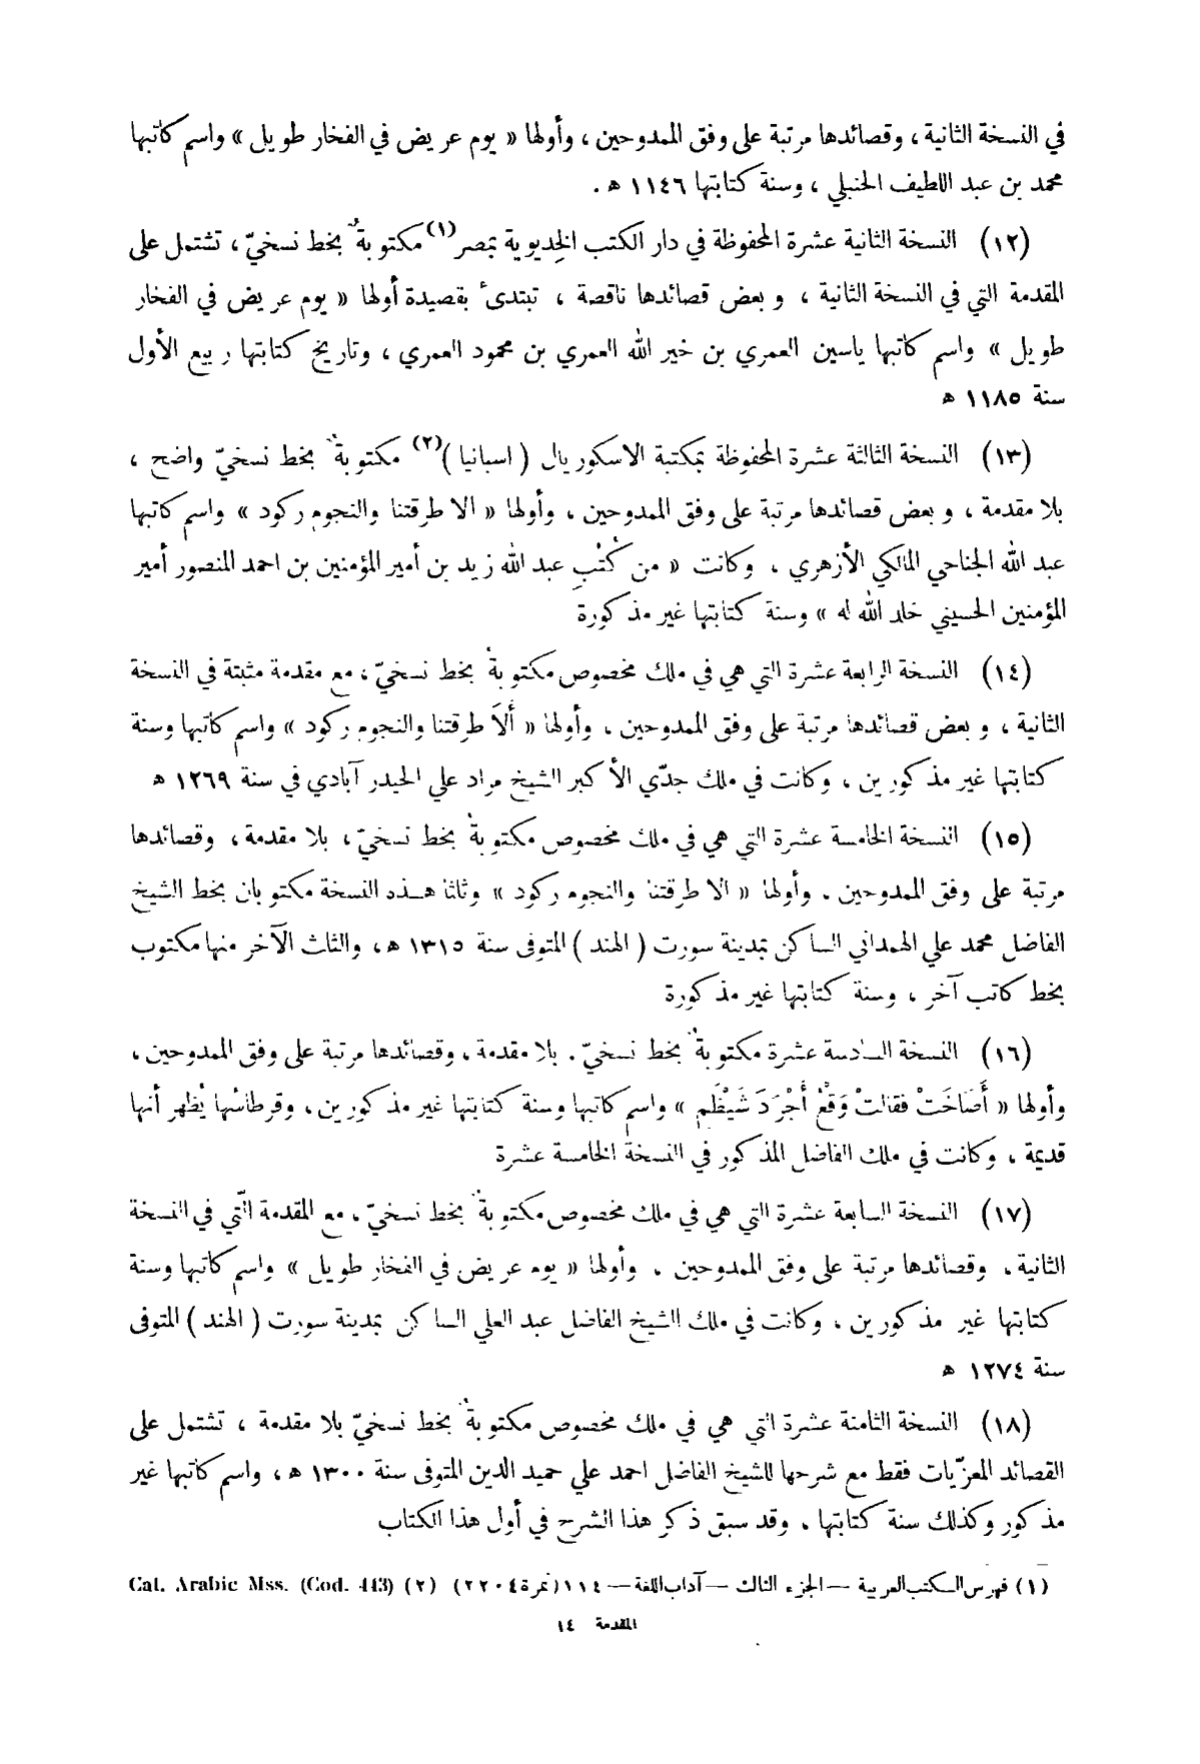 في النسخة الثانية ، وقصائدها مرتبة على وفق الممدوحين ، وأولها « يوم عريض في الفخار طويل » واسم كاتبها
محمد بن عبد اللطيف الحنبلي ، وسنة كتابتها ١١٤٦ ه .
(١٢) النسخة الثانية عشرة المحفوظة في دار الكتب الخِديوية بمصر(١) مكتوبةٌ بخط نسخيّ ، تشتمل على
المقدمة التي في النسخة الثانية ، وبعض قصائدها ناقصة ، تبتدىء بقصيدة أولها « يوم عريض في الفخار
طويل » واسم كاتبها ياسين العمري بن خير الله العمري بن محمود العمري ، وتاريخ كتابتها ربيع الأول
سنة ١١٨٥ ه
(١٣) النسخة الثالثة عشرة المحفوظة بمكتبة الاسكوريال ( اسبانيا )(٢) مكتوبةٌ بخط نسخيّ واضح ،
بلا مقدمة ، وبعض قصائدها مرتبة على وفق الممدوحين ، وأولها « الا طرقتنا والنجوم ركود » واسم كاتبها
عبد الله الجناحي المالكي الأزهري ، وكانت « من كُتْبِ عبد الله زيد بن أمير المؤمنين بن احمد المنصور أمير
المؤمنين الحسيني خلد الله له » وسنة كتابتها غير مذكورة
(١٤) النسخة الرابعة عشرة التي هي في ملك مخصوص مكتوبةٌ بخط نسخيّ ، مع مقدمة مثبتة في النسخة
الثانية ، وبعض قصائدها مرتبة على وفق الممدوحين ، وأولها « أَلاَ طرقتنا والنجوم ركود » واسم كاتبها وسنة
كتابتها غير مذكورين ، وكانت في ملك جدّي الأكبر الشيخ مراد علي الحيدر آبادي في سنة ١٢٦٩ ه
(١٥) النسخة الخامسة عشرة التي هي في ملك مخصوص مكتوبةٌ بخط نسخيّ ، بلا مقدمة ، وقصائدها
مرتبة على وفق الممدوحين ، وأولها « الا طرقتنا والنجوم ركود » وثلثا هذه النسخة مكتوبان بخط الشيخ
الفاضل محمد علي الهمداني الساكن بمدينة سورت ( الهند ) المتوفى سنة ١٣١٥ ه ، والثلث الآخر منها مكتوب
بخط كاتب آخر ، وسنة كتابتها غير مذكورة
(١٦) النسخة السادسة عشرة مكتوبةٌ بخط نسخيّ ، بلا مقدمة ، وقصائدها مرتبة على وفق الممدوحين ،
وأولها « أَصَاخَتْ فقالتْ وَقْعُ أَجْرَدَ شَيْظَمِ » واسم كاتبها وسنة كتابتها غير مذكورين ، وقرطاسُها يُظهر أنها
قديمة ، وكانت في ملك الفاضل المذكور في النسخة الخامسة عشرة
(١٧) النسخة السابعة عشرة التي هي في ملك مخصوص مكتوبةٌ بخط نسخيّ ، مع المقدمة الّتي في النسخة
الثانية ، وقصائدها مرتبة على وفق الممدوحين ، وأولها « يوم عريض في الفخار طويل » واسم كاتبها وسنة
كتابتها غير مذكورين ، وكانت في ملك الشيخ الفاضل عبد العلي الساكن بمدينة سورت ( الهند ) المتوفى
سنة ١٢٧٤ ه
(١٨) النسخة الثامنة عشرة التي هي في ملك مخصوص مكتوبةٌ بخط نسخيّ بلا مقدمة ، تشتمل على
القصائد المعزّيات فقط مع شرحها للشيخ الفاضل احمد علي حميد الدين المتوفى سنة ١٣٠٠ ه ، واسم كاتبها غير
مذكور وكذلك سنة كتابتها ، وقد سبق ذكر هذا الشرح في أول هذا الكتاب
(١) فهرس الكتب العربية — الجزء الثالث — آداب اللغة — ١١٤ (نمرة ٢٢٠٤) (٢) Cat. Arabic Mss. (Cod. 443)
المقدمة ١٤